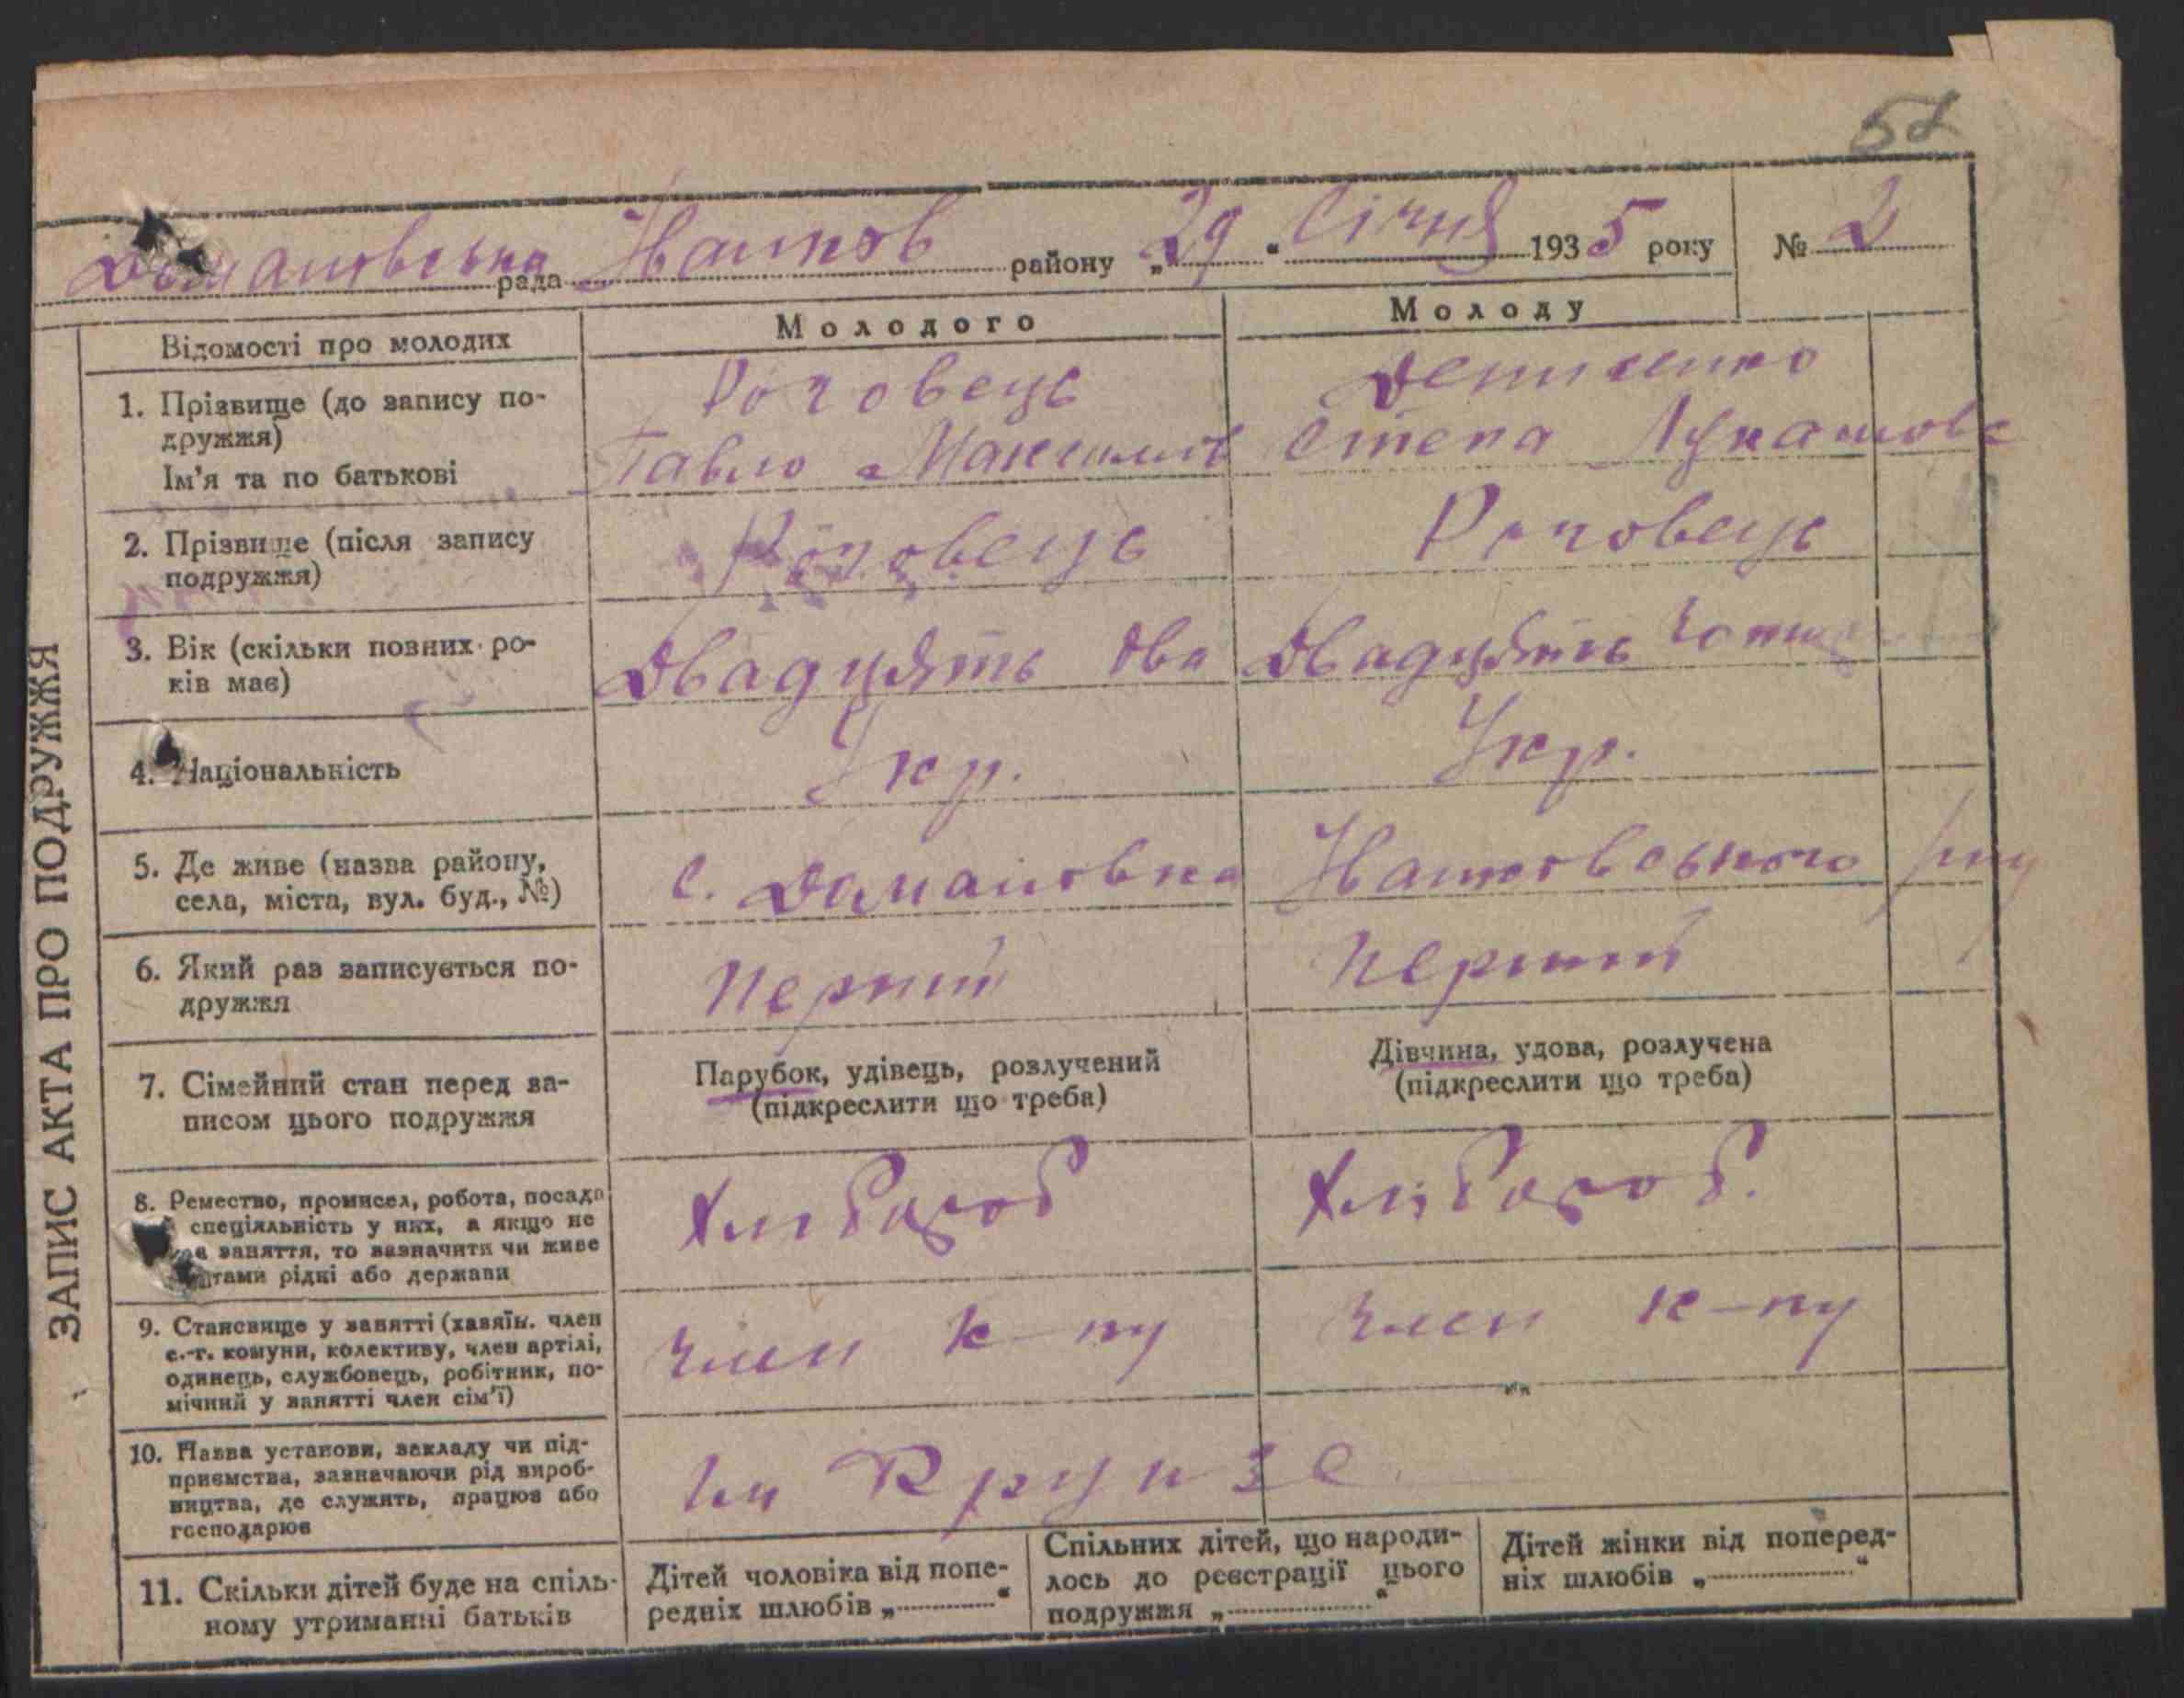 58
Домашовська рада Жашков району „29“ Січня 1935 року № 2
ЗАПИС АКТА ПРО ПОДРУЖЖЯ
Відомості про молодих
Молодого
Молоду
1. Прізвище (до запису по-
дружжя)
Ім'я та по батькові
Роговець
Павло Максимов
Денисенко
Степа Лукашовс
2. Прізвище (після запису
подружжя)
Роговець
Роговець
3. Вік (скільки повних ро-
ків має)
Двадцять два
Двадцять чоти
4. Національність
Укр.
Укр.
5. Де живе (назва району,
села, міста, вул. буд., №)
с. Домашовка Жашковського р-ну
6. Який раз записується по-
дружжя
перший
перший
7. Сімейний стан перед за-
писом цього подружжя
Парубок, удівець, розлучений
(підкреслити що треба)
Дівчина, удова, розлучена
(підкреслити що треба)
8. Ремество, промисел, робота, посада
спеціяльність у них, а якщо не
заняття, то зазначити чи живе
тами рідні або держави
Хлібороб
Хлібороб.
9. Становище у занятті (хазяїн. член
с.-г. комуни, колективу, член артілі,
одинець, службовець, робітник, по-
мічний у занятті член сім'ї)
член к-пу
член к-пу
10. Назва установи, закладу чи під-
приємства, зазначаючи рід вироб-
ництва, де служить, працює або
господарює
Ім Фрунзе
11. Скільки дітей буде на спіль-
ному утриманні батьків
Дітей чоловіка від попе-
редніх шлюбів „ “
Спільних дітей, що народи-
лось до реєстрації цього
подружжя „ “
Дітей жінки від поперед-
ніх шлюбів „ “